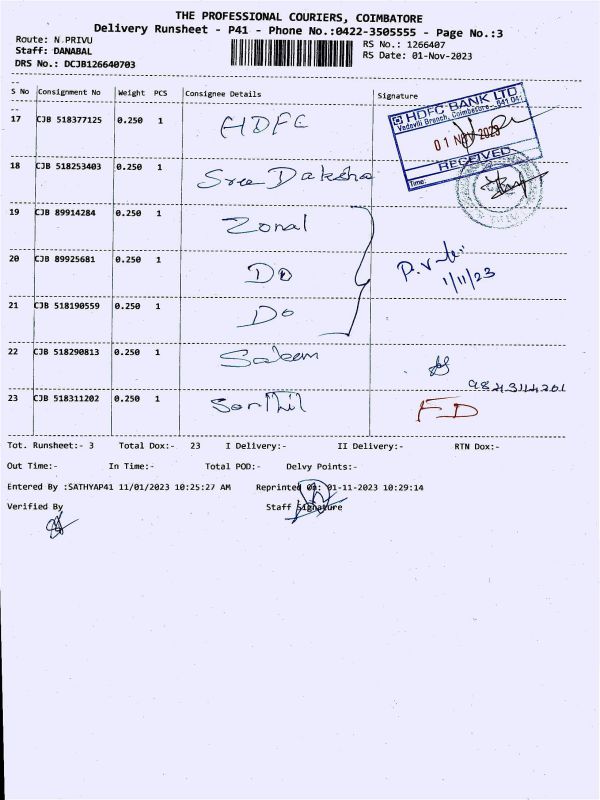 THE PROFESSIONAL COURIERS, COIMBATORE
Delivery Runsheet - P41 - Phone No.:0422-3505555 - Page No.:3
Route: N.PRIVU
RS No.: 1266407
Staff: DANABAL
RS Date: 01-Nov-2023
DRS No.: DCJB126640703
S No Consignment No Weight PCS Consignee Details Signature
17 CJB 518377125 0.250 1 HDFC
HDFC BANK LTD
Vadavalli Branch, Coimbatore - 641 041
01 NOV 2023
RECEIVED
Time:
18 CJB 518253403 0.250 1 Sree Daksha
19 CJB 89914284 0.250 1 Zonal
20 CJB 89925681 0.250 1 Do
1/11/23
21 CJB 518190559 0.250 1 Do
22 CJB 518290813 0.250 1 Saleem
23 CJB 518311202 0.250 1 Senthil FD
Tot. Runsheet:- 3 Total Dox:- 23 I Delivery:- II Delivery:- RTN Dox:-
Out Time:- In Time:- Total POD:- Delvy Points:-
Entered By :SATHYAP41 11/01/2023 10:25:27 AM Reprinted On: 01-11-2023 10:29:14
Verified By Staff Signature